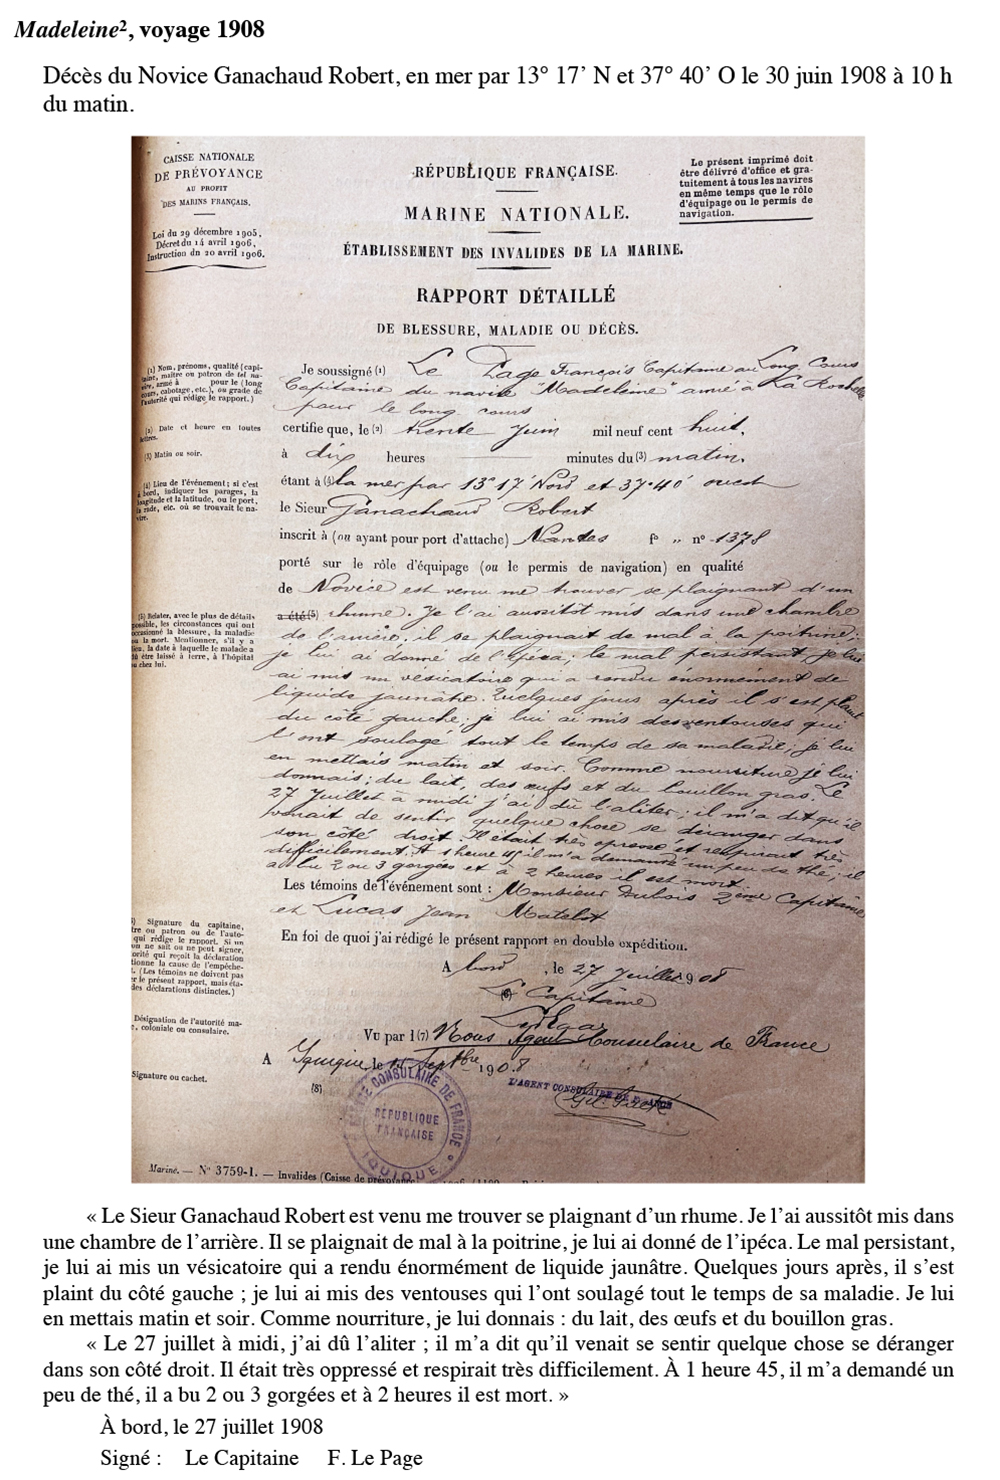 Madeleine², voyage 1908
Décès du Novice Ganachaud Robert, en mer par 13° 17’ N et 37° 40’ O le 30 juin 1908 à 10 h
du matin.
CAISSE NATIONALE
DE PRÉVOYANCE
AU PROFIT
DES MARINS FRANÇAIS.
Loi du 29 décembre 1905,
Décret du 14 avril 1906,
Instruction du 20 avril 1906.
RÉPUBLIQUE FRANÇAISE.
MARINE NATIONALE.
ÉTABLISSEMENT DES INVALIDES DE LA MARINE.
RAPPORT DÉTAILLÉ
DE BLESSURE, MALADIE OU DÉCÈS.
Le présent imprimé doit
être délivré d'office et gra-
tuitement à tous les navires
en même temps que le rôle
d'équipage ou le permis de
navigation.
(1) Nom, prénoms, qualité (capi-
taine, maître ou patron de tel na-
vire, armé à pour le (long
cours, cabotage, etc.), ou grade de
l'autorité qui rédige le rapport.)
Je soussigné (1) Le Page François Capitaine au Long Cours
Capitaine du navire "Madeleine" armé à La Rochelle
pour le long cours
(2) Date et heure en toutes
lettres.
certifie que, le (2) trente Juin mil neuf cent huit,
(3) Matin ou soir.
à dix heures minutes du (3) matin,
(4) Lieu de l'événement; si c'est
à bord, indiquer les parages, la
longitude et la latitude, ou le port,
la rade, etc. où se trouvait le na-
vire.
étant à (4) la mer par 13°17' Nord et 37°40' ouest
le Sieur Ganachaud Robert
inscrit à (ou ayant pour port d'attache) Nantes f° „ n° 1378
porté sur le rôle d'équipage (ou le permis de navigation) en qualité
de Novice est venu me trouver se plaignant d'un
(5) Relater, avec le plus de détails
possible, les circonstances qui ont
occasionné la blessure, la maladie
ou la mort. Mentionner, s'il y a
lieu, la date à laquelle le malade a
dû être laissé à terre, à l'hôpital
ou chez lui.
a été (5) rhume. Je l'ai aussitôt mis dans une chambre
de l'arrière, il se plaignait de mal à la poitrine;
je lui ai donné de l'ipéca; le mal persistant, je lui
ai mis un vésicatoire qui a rendu énormément de
liquide jaunâtre. Quelques jours après il s'est plaint
du côté gauche; je lui ai mis des ventouses qui
l'ont soulagé tout le temps de sa maladie; je lui
en mettais matin et soir. Comme nourriture je lui
donnais: du lait, des œufs et du bouillon gras. Le
27 Juillet à midi j'ai dû l'aliter; il m'a dit qu'il
venait de sentir quelque chose se déranger dans
son côté droit. Il était très opressé et respirait très
difficilement. A 1 heure 45 il m'a demandé un peu de thé; il
a bu 2 ou 3 gorgées et à 2 heures il est mort.
Les témoins de l'événement sont : Monsieur Dubois 2ème Capitaine
et Lucas Jean Matelot
Signature du capitaine,
maître ou patron ou de l'auto-
rité qui rédige le rapport. Si un
témoin ne sait ou ne peut signer,
l'autorité qui reçoit la déclaration
mentionne la cause de l'empêche-
ment. (Les témoins ne doivent pas
signer le présent rapport, mais éta-
blir des déclarations distinctes.)
En foi de quoi j'ai rédigé le présent rapport en double expédition.
A bord, le 27 Juillet 1908
(6) Le Capitaine
Désignation de l'autorité ma-
ritime, coloniale ou consulaire.
Vu par l (7) Nous Agent Consulaire de France
A Iquique, le Septbre 1908
Signature ou cachet.
(8)
AGENCE CONSULAIRE DE FRANCE
RÉPUBLIQUE
FRANÇAISE
IQUIQUE
L'AGENT CONSULAIRE DE FRANCE
Marine. — N° 3759-1. — Invalides (Caisse de prévoyance
« Le Sieur Ganachaud Robert est venu me trouver se plaignant d’un rhume. Je l’ai aussitôt mis dans
une chambre de l’arrière. Il se plaignait de mal à la poitrine, je lui ai donné de l’ipéca. Le mal persistant,
je lui ai mis un vésicatoire qui a rendu énormément de liquide jaunâtre. Quelques jours après, il s’est
plaint du côté gauche ; je lui ai mis des ventouses qui l’ont soulagé tout le temps de sa maladie. Je lui
en mettais matin et soir. Comme nourriture, je lui donnais : du lait, des œufs et du bouillon gras.
« Le 27 juillet à midi, j’ai dû l’aliter ; il m’a dit qu’il venait se sentir quelque chose se déranger
dans son côté droit. Il était très oppressé et respirait très difficilement. À 1 heure 45, il m’a demandé un
peu de thé, il a bu 2 ou 3 gorgées et à 2 heures il est mort. »
À bord, le 27 juillet 1908
Signé : Le Capitaine F. Le Page